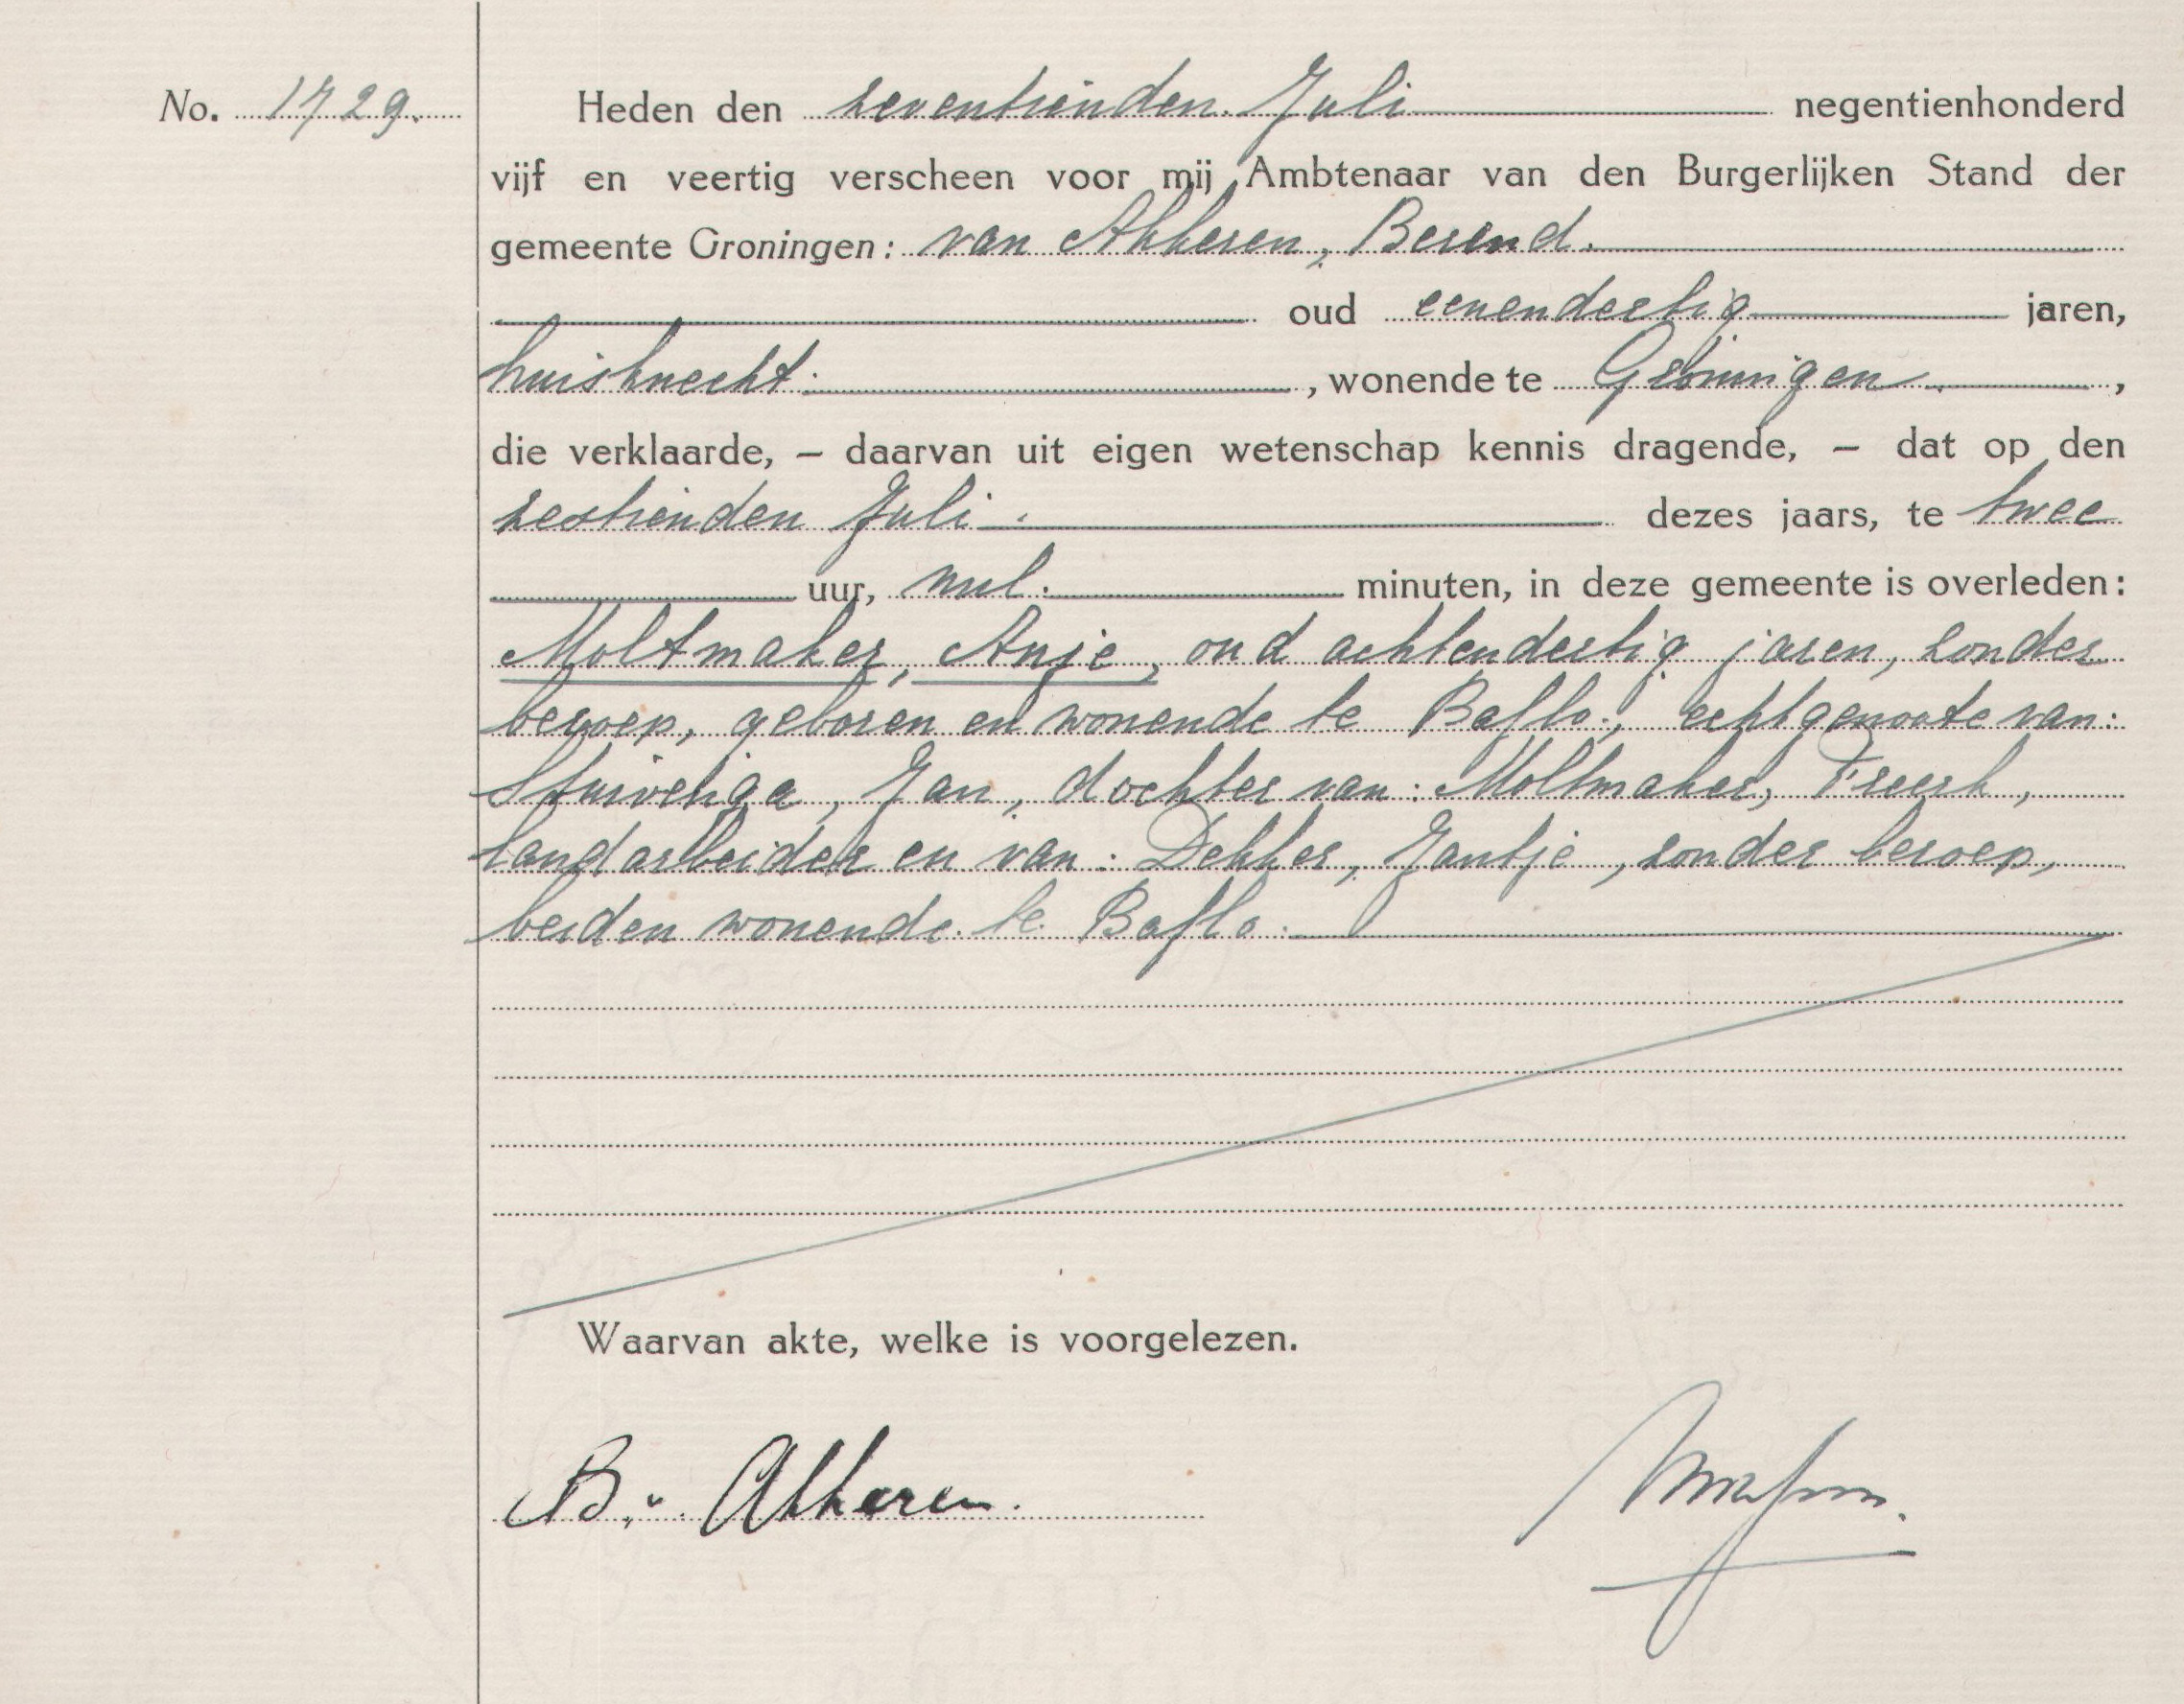 No. 1729.
Heden den zeventienden Juli negentienhonderd
vijf en veertig verscheen voor mij Ambtenaar van den Burgerlijken Stand der
gemeente Groningen: van Akkeren, Berend.
oud eenendertig jaren,
huisknecht. , wonende te Groningen ,
die verklaarde, – daarvan uit eigen wetenschap kennis dragende, – dat op den
zestienden Juli dezes jaars, te twee
uur, nul. minuten, in deze gemeente is overleden:
Moltmaker, Anje, oud achtendertig jaren, zonder
beroep, geboren en wonende te Baflo, echtgenoote van:
Stuivenga, Jan, dochter van: Moltmaker, Freerk,
landarbeider en van: Dekker, Jantje, zonder beroep,
beiden wonende te Baflo.
Waarvan akte, welke is voorgelezen.
B. v. Akkeren.